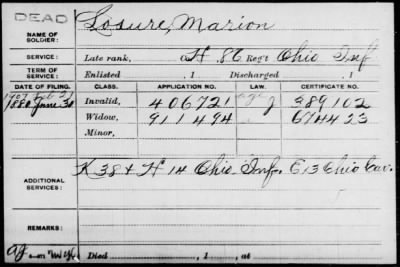 DEAD
NAME OF SOLDIER: Losure, Marion
SERVICE: Late rank, Co H, 86 Reg't Ohio Inf
TERM OF SERVICE: Enlisted , 1 Discharged , 1
DATE OF FILING. CLASS. APPLICATION NO. LAW. CERTIFICATE NO.
1880 June 30 Invalid, 406721 389102
Widow, 911494 674423
Minor,
ADDITIONAL SERVICES: K 38 & H 14 Ohio Inf. E 13 Ohio Cav.
REMARKS:
Died , 1 , at